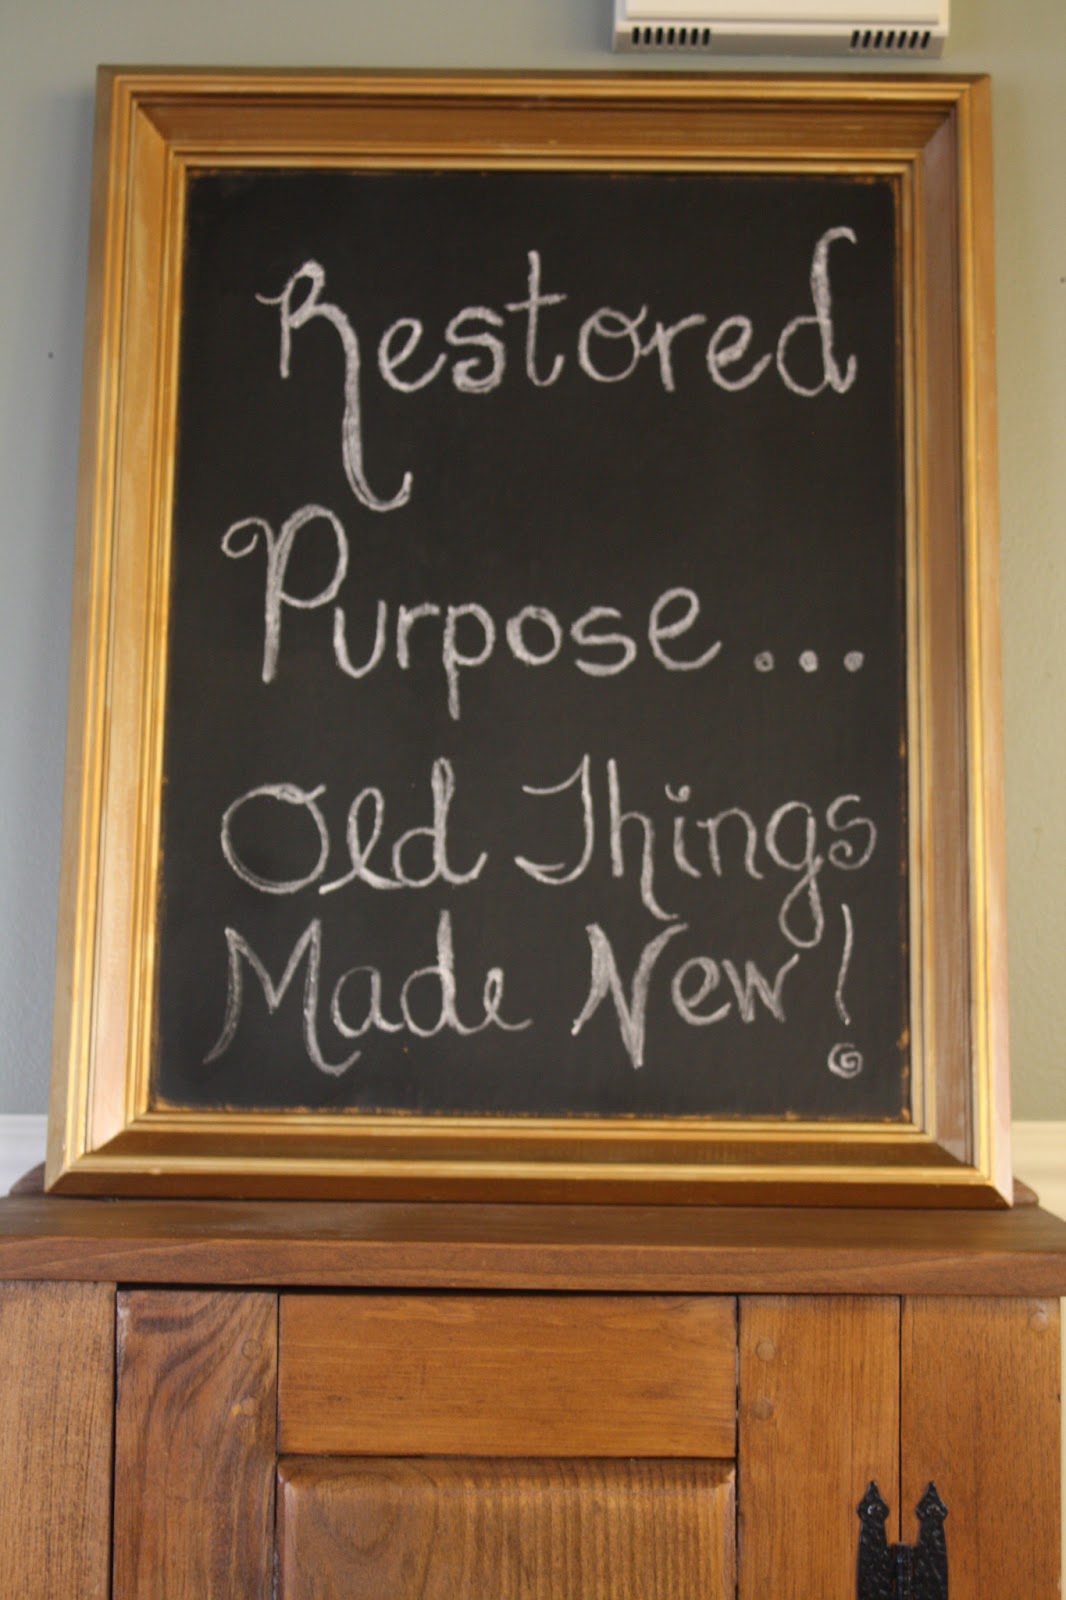 Restored
Purpose...
Old Things
Made New!